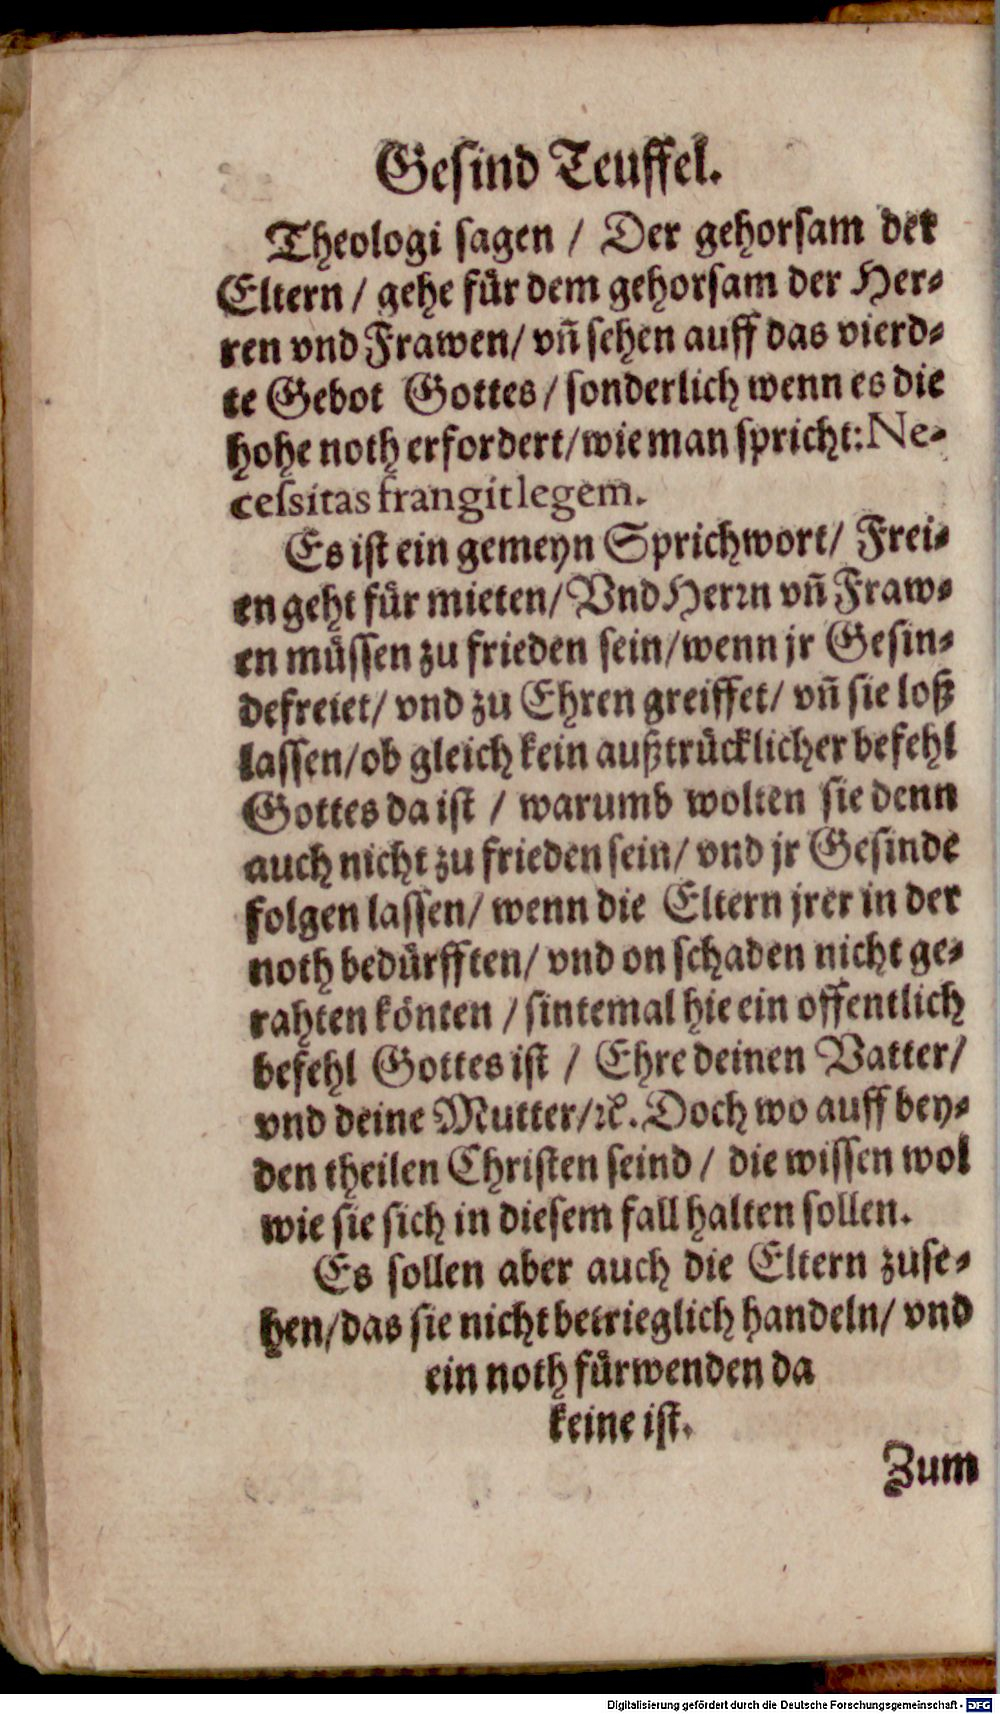 Gesind Teuffel.
Theologi sagen / Der gehorsam der
Eltern / gehe für dem gehorsam der Her⸗
ren vnd Frawen/ vñ sehen auff das vierd⸗
te Gebot Gottes / sonderlich wenn es die
hohe noth erfordert/wie man spricht: Ne-
cessitas frangit legem.
Es ist ein gemeyn Sprichwort/ Frei⸗
en geht für mieten/ Vnd Herrn vñ Fraw⸗
en müssen zu frieden sein/wenn jr Gesin⸗
defreiet/ vnd zu Ehren greiffet/ vñ sie loß
lassen/ob gleich kein außtrücklicher befehl
Gottes da ist / warumb wolten sie denn
auch nicht zu frieden sein/ vnd jr Gesinde
folgen lassen/ wenn die Eltern jrer in der
noth bedürfften/ vnd on schaden nicht ge⸗
rahten könten / sintemal hie ein offentlich
befehl Gottes ist / Ehre deinen Vatter/
vnd deine Mutter/ꝛc. Doch wo auff bey⸗
den theilen Christen seind / die wissen wol
wie sie sich in diesem fall halten sollen.
Es sollen aber auch die Eltern zuse⸗
hen/das sie nicht betrieglich handeln/ vnd
ein noth fürwenden da
keine ist.
Zum
Digitalisierung gefördert durch die Deutsche Forschungsgemeinschaft - DFG